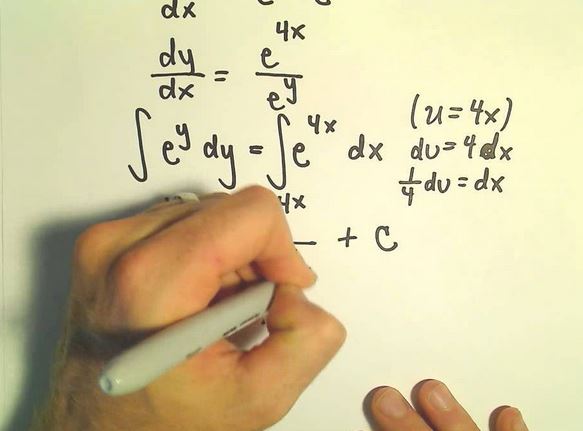 dx
dy/dx = e^4x/e^y
∫ e^y dy = ∫ e^4x dx
(u = 4x)
du = 4dx
1/4 du = dx
4x
— + C